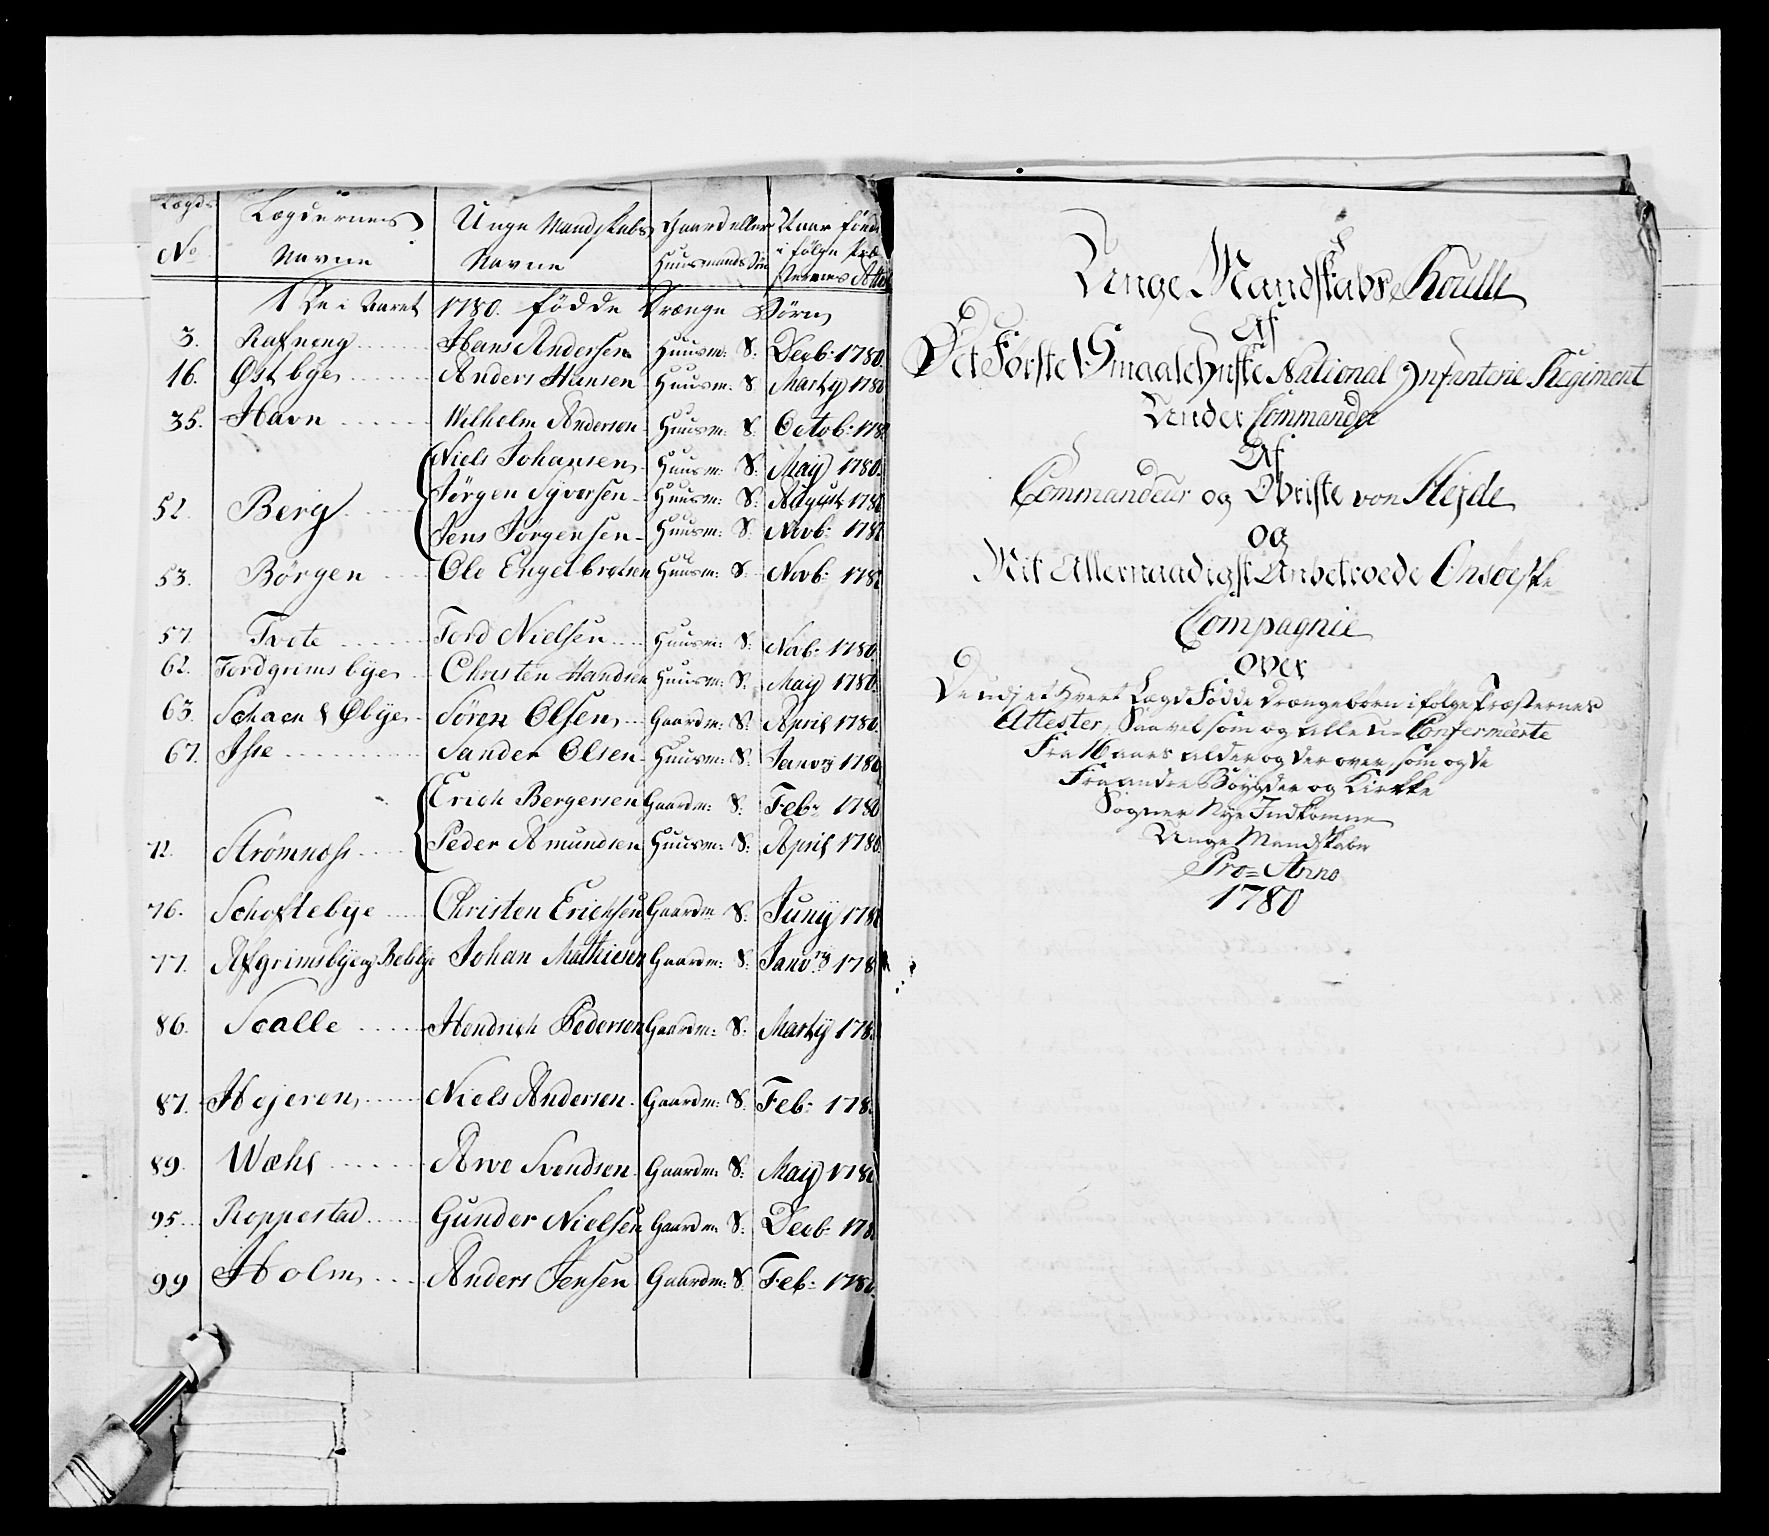 Lægds No | Lægdernes Navne | Unge Mandskabs Navne | Gaard eller Huusmands Søn | Naar fødd i følge Præsternes Attest
1 De i Aaret 1780. fødde Drænge Børn
3. Rafneng Hans Andersen Huusm: S. Decb: 1780.
16. Østbye Anders Hansen Huusm: S Marty 1780
35. Havn Wilhelm Andersen Huusm: S. Octob: 178
Niels Johansen Huusm: S. May 1780.
52. Berg Jørgen Syversen Huusm: S. August 1780
Jens Jørgensen Huusm: S. Novb: 178
53. Børgen Ole Engelbretsen Huusm: S. Novb: 178
57. Tvete Tord Nielsen Huusm: S. Novb: 1780.
62. Tordgrimsbye Christen Handsen Huusm: S. May 1780.
63. Schaen & Øbye Sören Olsen Gaardm: S. April 1780.
67. Isse Sander Olsen Huusm: S. Janvy 1780
Erich Bergersen Gaardm: S. Feb: 1780
72. Strømness Peder Amundsen Huusm: S. April 1780.
76. Schoftebye Christen Erichsen Gaardm S. Juny 178
77. Afgrimsbye og Bolbye Johan Mathiesen Gaardm: S. Janvry 178
86. Scalle Hendrich Pedersen Gaardm: S. Marty 178
87. Hejeren Niels Andersen Gaardm: S. Feb: 178
89. Wæhl Arve Svendsen Gaardm: S. May 178
95. Roppestad Gunder Nielsen Gaardm: S. Decb: 178
99 Holm Anders Jensen Gaardm: S. Feb: 1780.
Unge Mandskabs Roulle
Af
Det Første Smaalehnske National Infanterie Regiment
Under Commando
Af
Commandeur og Obriste von Hejde
og
Mit Allernaadigst Anbetroede Onsøeske
Compagnie
over
De udj et hvert Lægd Fødde Drængebørn i følge Præsternes
Attester, Saavelsom og alle u-Confermeerte
Fra 16 Aars alder og der over, som og de
Fra andre Bøygder og Kirkke
Sogner Nye Indkomne
Unge Mandskaber
Pro= Anno
1780